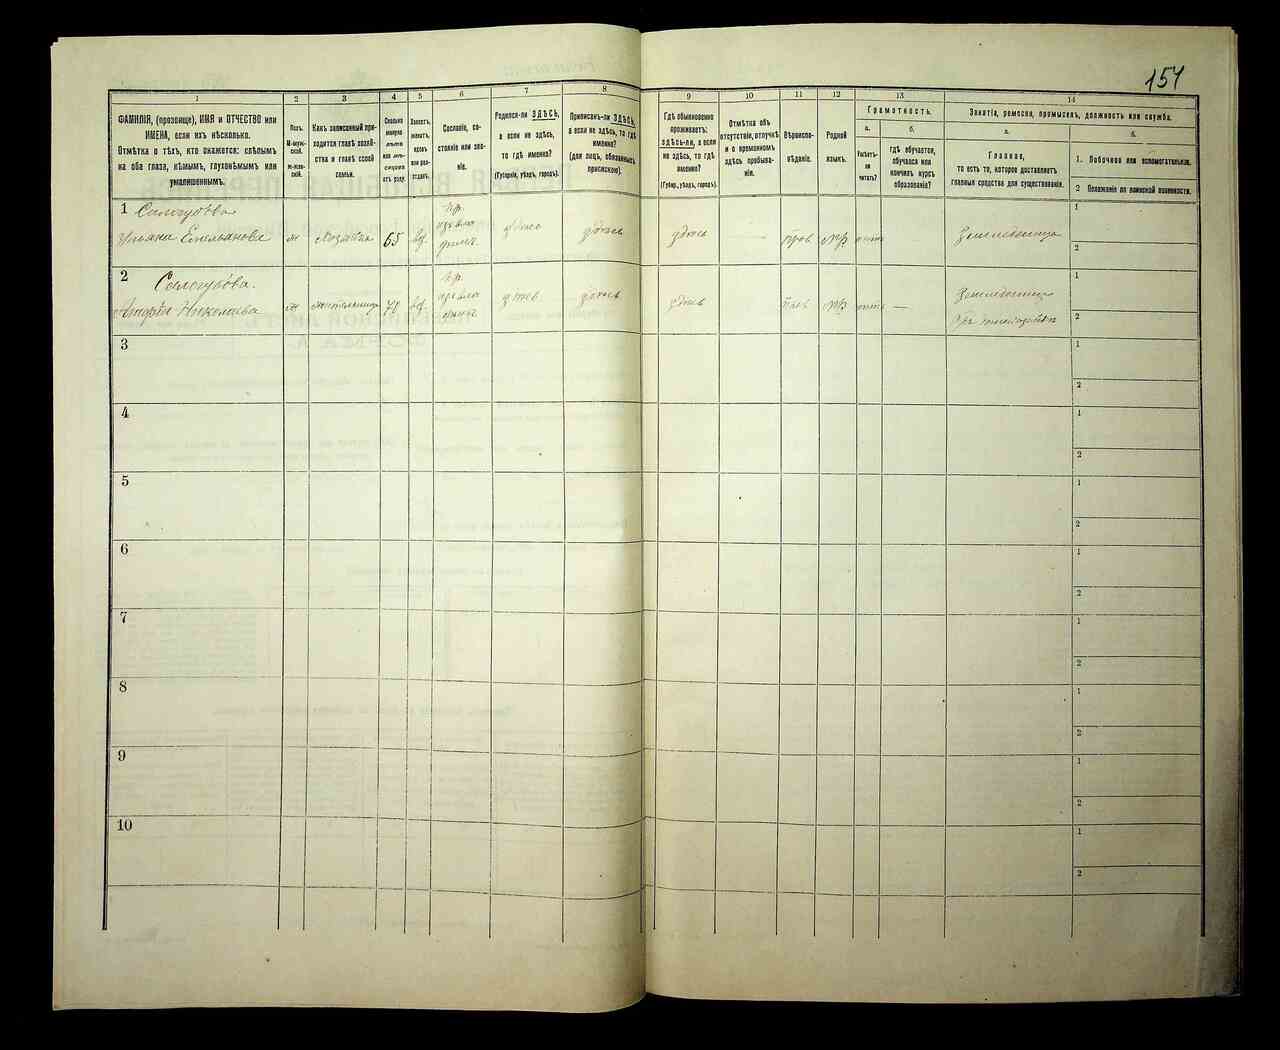 154
1
2
3
4
5
6
7
8
9
10
11
12
13
14
ФАМИЛІЯ, (прозвище), ИМЯ и ОТЧЕСТВО или
ИМЕНА, если ихъ нѣсколько.
Отмѣтка о тѣхъ, кто окажется: слѣпымъ
на оба глаза, нѣмымъ, глухонѣмымъ или
умалишеннымъ.
Полъ.
М-муж-
ской.
Ж-жен-
скій.
Какъ записанный при-
ходится главѣ хозяй-
ства и главѣ своей
семьи.
Сколько
минуло
лѣтъ
или мѣ-
сяцевъ
отъ роду.
Холостъ,
женатъ,
вдовъ
или раз-
веденъ.
Сословіе, со-
стояніе или зва-
ніе.
Родился-ли ЗДѢСЬ,
а если не здѣсь,
то гдѣ именно?
(Губернія, уѣздъ, городъ).
Приписанъ-ли ЗДѢСЬ,
а если не здѣсь, то гдѣ
именно?
(для лицъ, обязанныхъ
припискою).
Гдѣ обыкновенно
проживаетъ:
здѣсь-ли, а если
не здѣсь, то гдѣ
именно?
(Губер., уѣздъ, городъ).
Отмѣтка объ
отсутствіи, отлучкѣ
и о временномъ
здѣсь пребыва-
ніи.
Вѣроиспо-
вѣданіе.
Родной
языкъ.
Грамотность.
а.
Умѣетъ-
ли
читать?
б.
гдѣ обучается,
обучался или
кончилъ курсъ
образованія?
Занятія, ремесло, промыселъ, должность или служба.
а.
Главное,
то есть то, которое доставляетъ
главныя средства для существованія.
б.
1. Побочное или вспомогательное.
2 Положеніе по воинской повинности.
1 Сологубова
Ульяна Емельянова ж Хозяйка 65 вд. здѣсь здѣсь здѣсь — Прав нѣтъ Земледѣлица
1
2
2 Сологубова.
Николаева ж 70 вд. здѣсь здѣсь здѣсь Прав нѣтъ — Земледѣлица
1
2
3
1
2
4
1
2
5
1
2
6
1
2
7
1
2
8
1
2
9
1
2
10
1
2